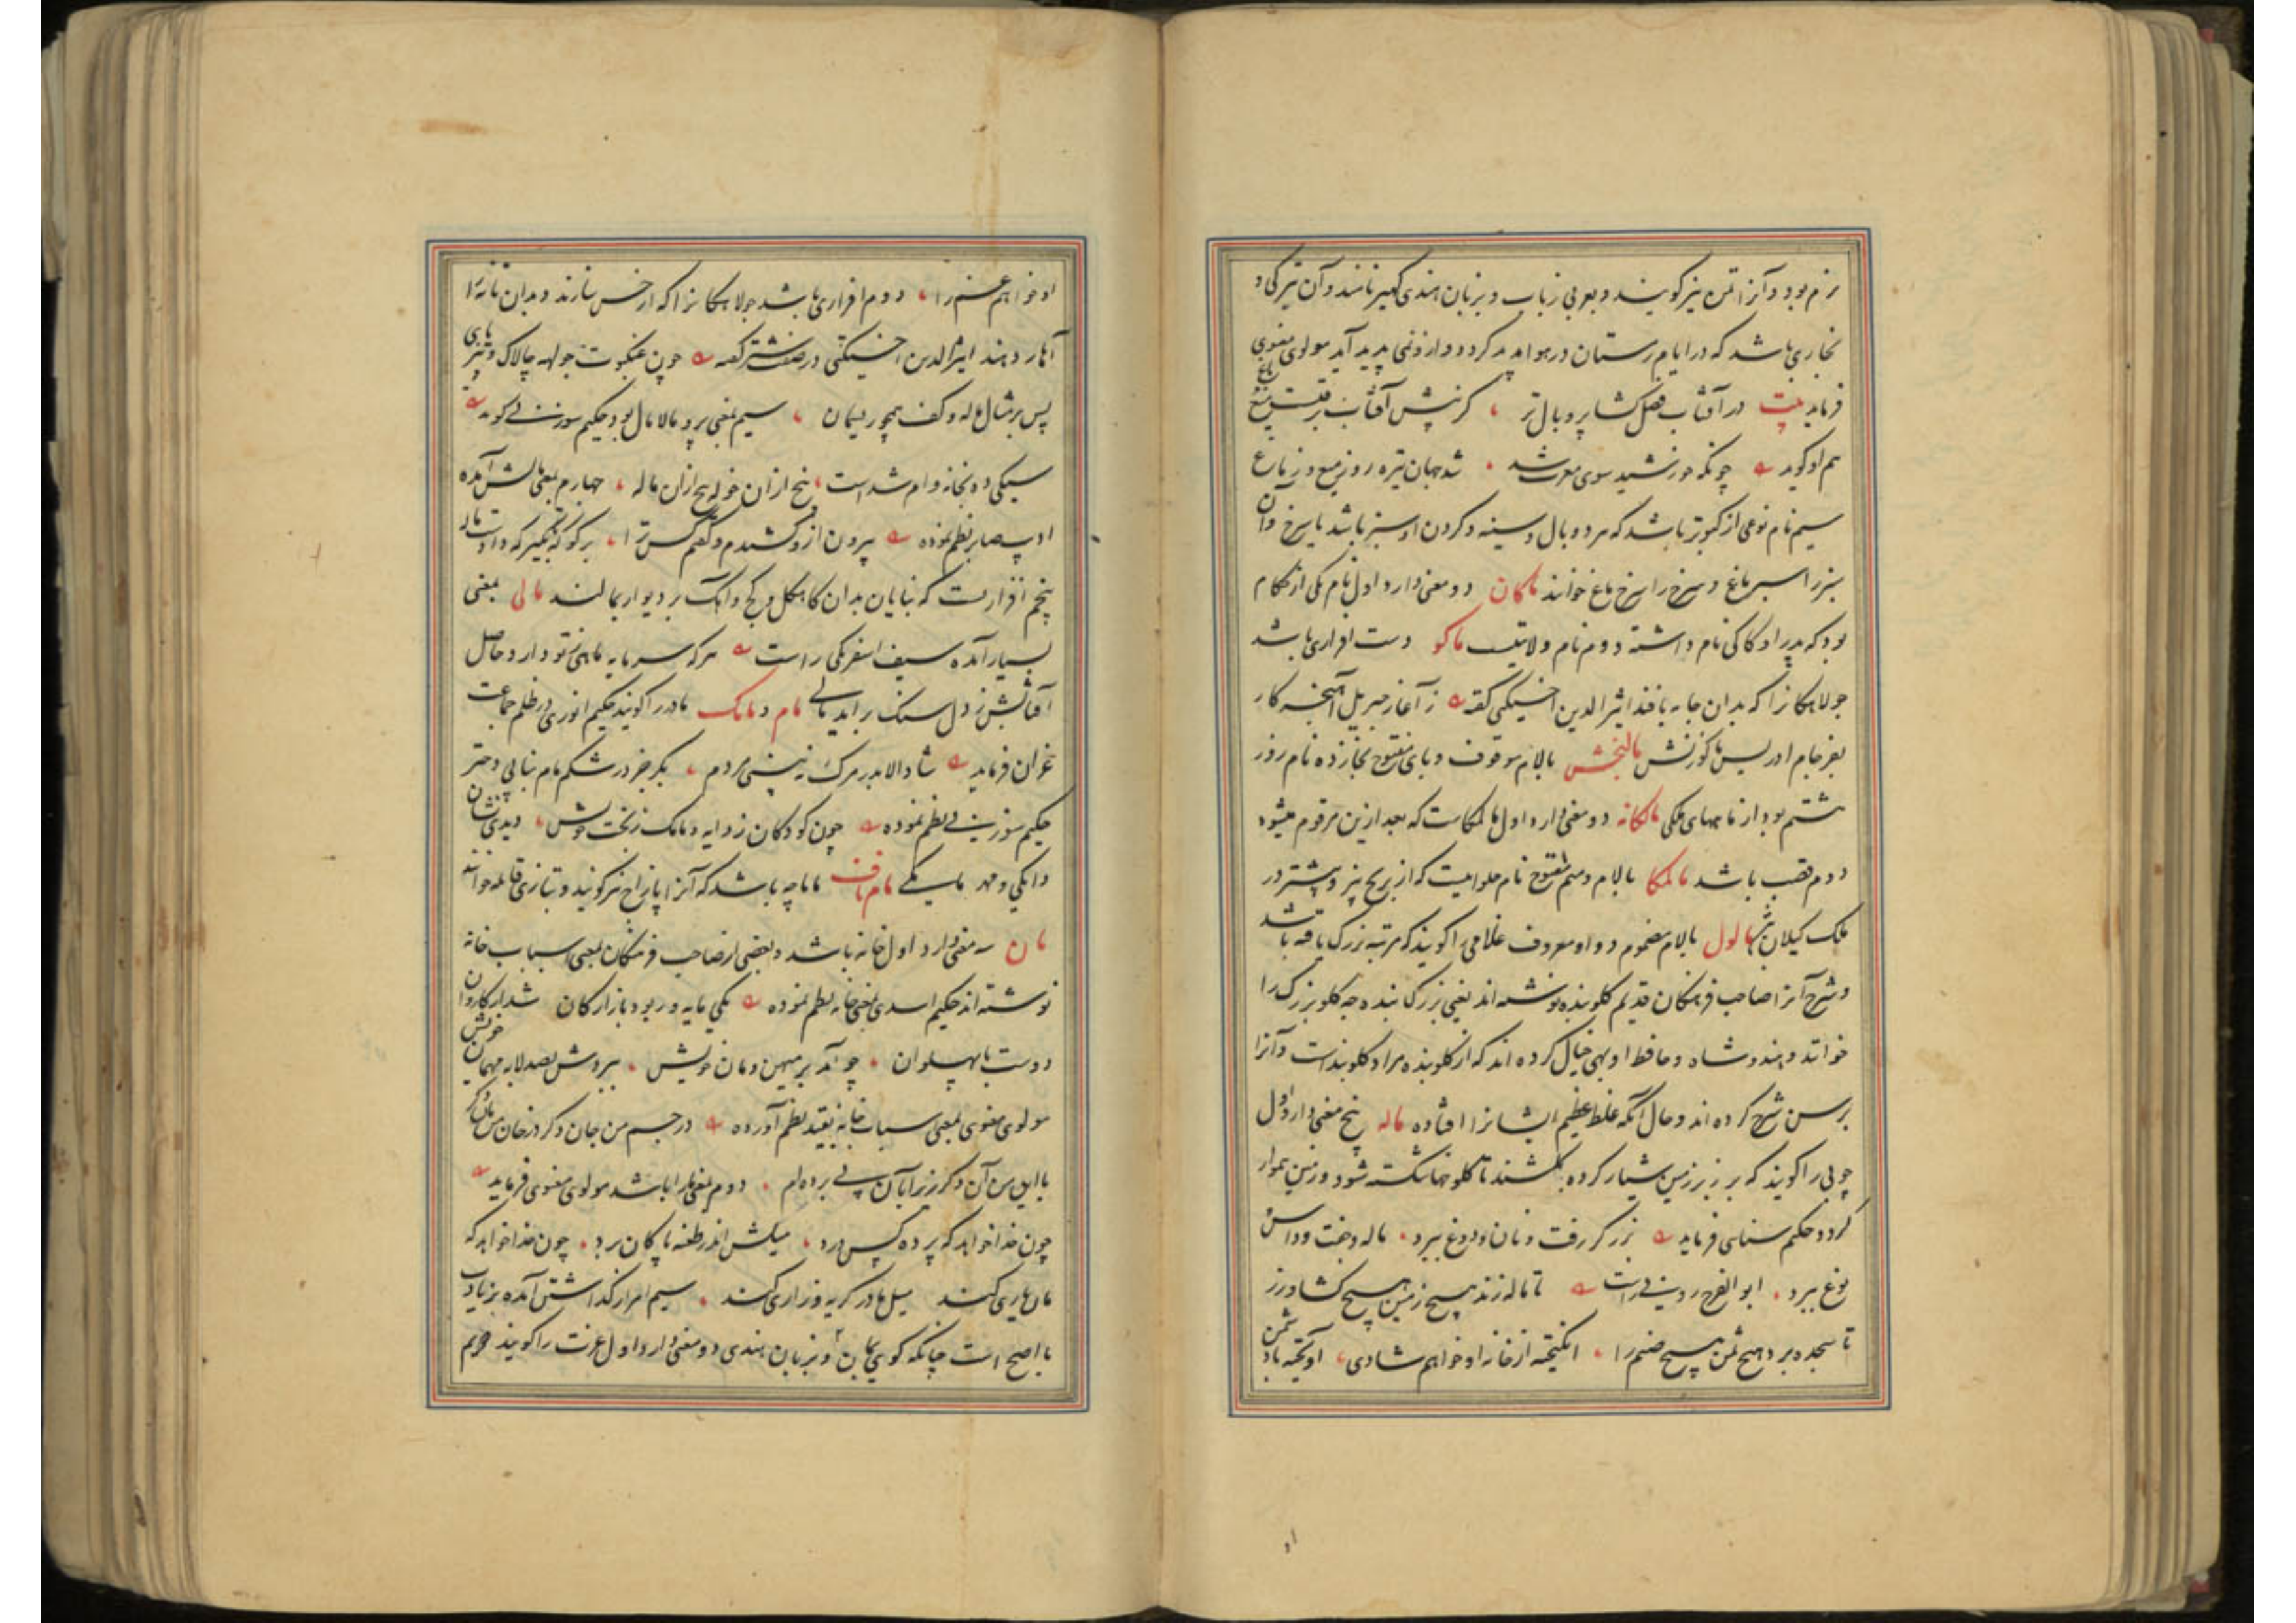 نژم بود و آنرا تمن نیز گویند و بعربی ضباب و بزبان هندی کهیر نامند و آن تیرگی و
بخاری باشد که در ایام زمستان در هوا پدید گردد و از و نمی پدید آید مولوی معنوی
فرماید بیت در آفتاب فضل گشا پر و بال تر کز پیش آفتاب برفتست میغ ماغ
هم او گوید چونکه خورشید سوی مغرب شد شد جهان تیره رو ز میغ و ز ماغ
سیم نام نوعی از کبوتر باشد که هر دو بال و سینه و گردن او سبز باشد یا سرخ و آن
سبز را سبز ماغ و سرخ را سرخ ماغ خوانند ماکان دو معنی دارد اول نام یکی از حکام
بود که پدر او کاکی نام داشته دوم نام ولایتیست ماکو دست افزاری باشد
جولاهگانرا که بدان جامه بافند اثیر الدین اخسیکتی گفته ز آغاز جبریل آهیخته کار
بفرجام ادریس ماکو زنش مالبخش بالام موقوف و بای مفتوح بخا زده نام روز
هشتم بود از ماههای ملکی مالکانه دو معنی دارد اول مالکاست که بعد ازین مرقوم میشود
دوم قصب باشد مالکا بالام و میم مفتوح نام حلوائیست که از برنج پزند و بیشتر در
ملک گیلان پزند مالول بالام مضموم و واو معروف غلامی را گویند که مرتبه بزرگ یافته باشد
و شرح آنرا صاحب فرهنگان قدیم کلوبنده نوشته اند یعنی بزرگ بنده چه کلو بزرگ را
خوانند و هندوشاه و حافظ اوبهی خیال کرده اند که از کلوبنده مراد گلوبندست و آنرا
برسن شرح کرده اند و حال آنکه غلط عظیم ایشانرا افتاده ماله پنج معنی دارد اول
چوبی را گویند که بر زبر زمین شیار کرده بکشند تا کلوخها شکسته شود و زمین هموار
گردد حکیم سنائی فرماید برزگر رفت و نان و دوغ ببرد ماله و جفت و داس
یوغ ببرد ابو الفرج رونی راست تا ماله زند هیچ زمین هیچ کشاورز
تا سجده برد هیچ شمن هیچ صنم را انگیخته از خانه او خواهم شادی آویخته باد
او خواهم غم را دوم افزاری باشد جولاهگانرا که از خس سازند و بدان تانه را
آهار دهند اثیر الدین اخسیکتی در صفت شتر گفته چون عنکبوت جولهه چالاک و تیزپای
پس بر مثال ماله و کف همچو ریسمان سیم بمعنی پر و مالامال بود حکیم سوزنی گوید
سیکی دو نجانه وام شداست پنج از ان خوله پنج ازان ماله چهارم بمعنی مالش آمده
ادیب صابر نظم نموده بیرون ازو کشیدم و گفتم
پنجم افزاریست که بنایان بدان کاهگل و گچ و آهک بر دیوار بمالند مالی بمعنی
بسیار آمده سیف اسفرنگی راست هر که سرمایه ماهی تو دارد حاصل
آفتابش ز دل سنگ براید مالی مام و مامک مادر را گویند حکیم انوری در ظلم جماعت
غزان فرماید شاد الا بدر مرگ نه بینی مردم بکر جز در شکم مام نیابی دختر
حکیم سوزنی نظم نموده چون کودکان ز دایه و مامک ز بخت خویش دیدی نشان
دایگی و مهر مامکی مام ناف ماماچه باشد که آنرا پازاج نیز گویند و بتازی قابله خوانند
مان سه معنی دارد اول خانه باشد و بعضی از صاحب فرهنگان بمعنی اسباب خانه
نوشته اند حکیم اسدی بمعنی خانه نظم نموده یکی مایه ور بود بازارگان شد از کاروان
دوست با پهلوان چو آمد بر میهن و مان خویش ببردش بصد لابه مهمان خویش
مولوی معنوی بمعنی اسباب خانه بقید نظم آورده در جسم من جان دگر در خان من مان دگر
با این من آن دگر زیرا بآن پی برده ام دوم بمعنی ما را باشد مولوی معنوی فرماید
چون خدا خواهد که پرده کس درد میلش اندر طعنه پاکان برد چون خدا خواهد که
مان یاری کند میل ما در گریه و زاری کند سیم امر از گذاشتن آمده بزیادت
با اصح است چنانکه گوئی بمان و بزبان هندی دو معنی دارد اول عزت را گویند دویم
او